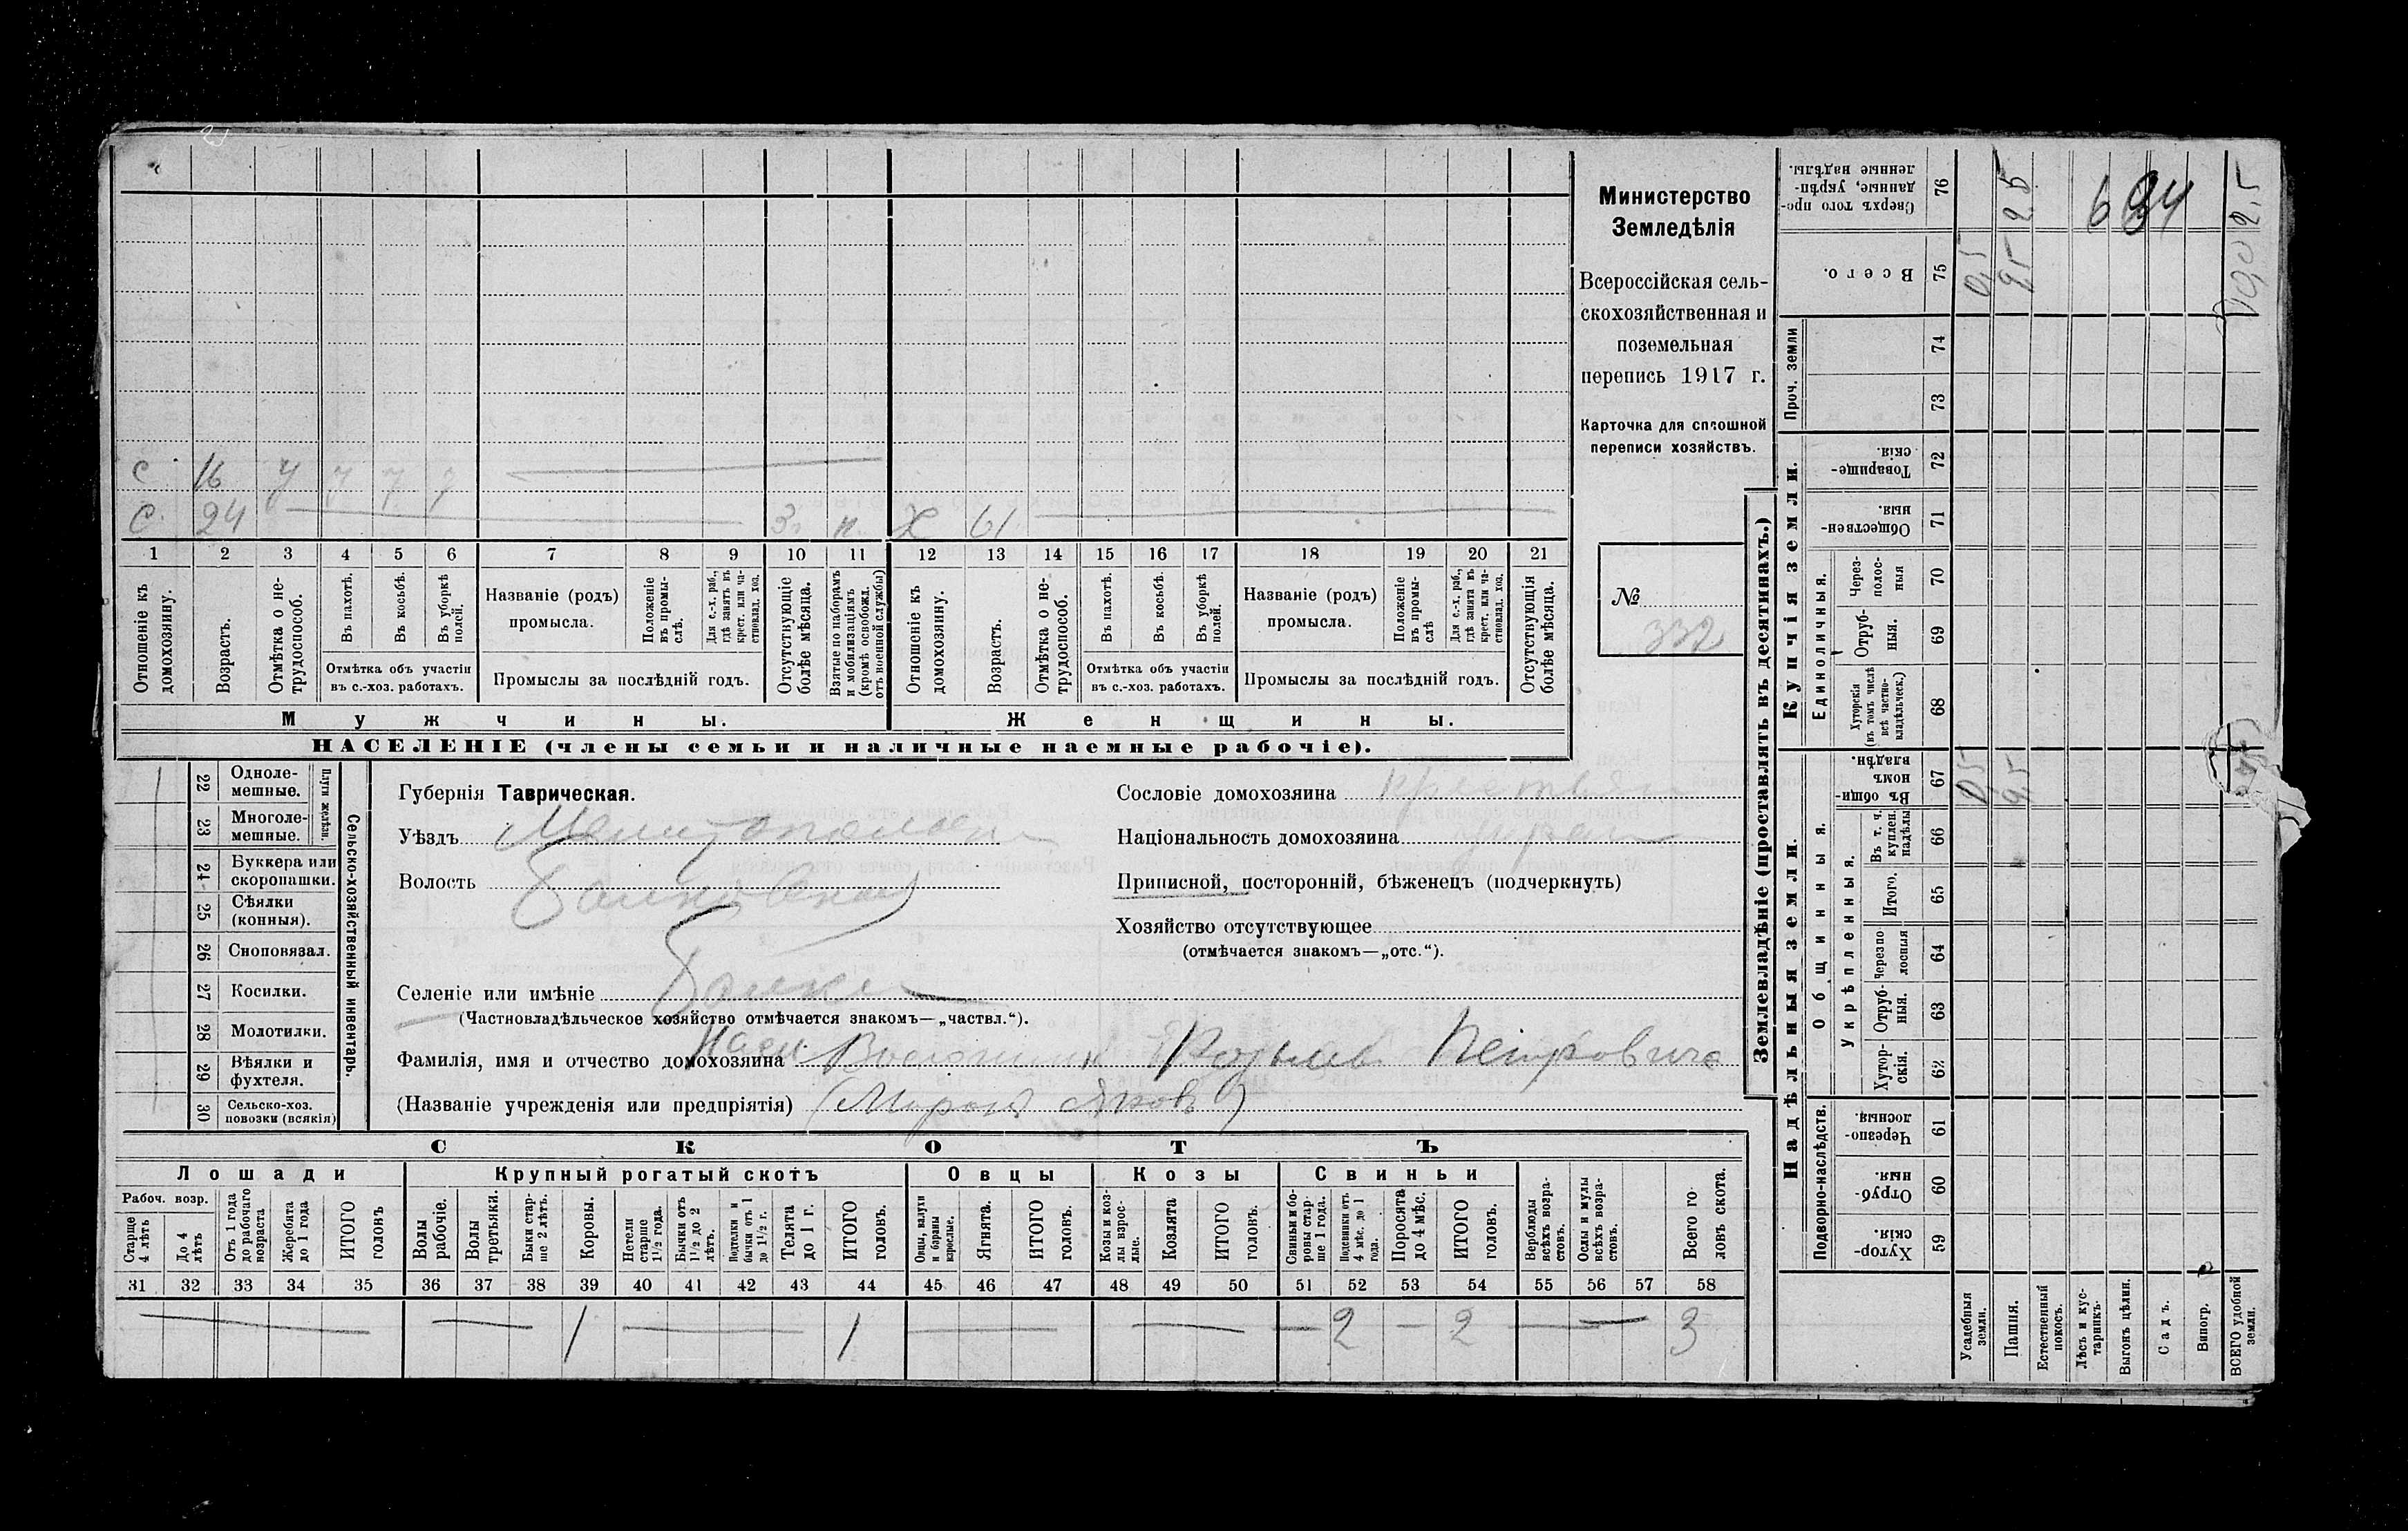 с 16 у у у у
с. 24 3 г. п. Х 61
1 2 3 4 5 6 7 8 9 10 11 12 13 14 15 16 17 18 19 20 21
Отношеніе къ домохозяину.
Возрастъ.
Отмѣтка о не-трудоспособ.
Въ пахотѣ.
Въ косьбѣ.
Въ уборкѣ полей.
Отмѣтка объ участіи
въ с.-хоз. работахъ.
Названіе (родъ)
промысла.
Положеніе въ промы-слѣ.
Для с.-х. раб., гдѣ занятъ въ крест. или ча-стновлад. хоз.
Промыслы за послѣдній годъ.
Отсутствующіе болѣе мѣсяца.
Взятые по наборамъ и мобилизаціямъ (кромѣ освобожд. отъ военной службы)
Отношеніе къ домохозяину.
Возрастъ.
Отмѣтка о не-трудоспособ.
Въ пахотѣ.
Въ косьбѣ.
Въ уборкѣ полей.
Отмѣтка объ участіи
въ с.-хоз. работахъ.
Названіе (родъ)
промысла.
Положеніе въ промы-слѣ
Для с.-х. раб., гдѣ занята въ крест. или ча-стновлад. хоз.
Промыслы за послѣдній годъ.
Отсутствующія болѣе мѣсяца.
Мужчины.
Женщины.
НАСЕЛЕНІЕ (члены семьи и наличные наемные рабочіе).
Министерство
Земледѣлія
Всероссійская сель-
скохозяйственная и
поземельная
перепись 1917 г.
Карточка для сплошной
переписи хозяйствъ.
№
332
22 Одноле-мешные.
23 Многоле-мешные.
24 Буккера или скоропашки.
25 Сѣялки (конныя).
26 Сноповязал.
27 Косилки.
28 Молотилки.
29 Вѣялки и фухтеля.
30 Сельско-хоз. повозки (всякія)
Сельско-хозяйственный инвентарь.
Губернія Таврическая.
Уѣздъ Мелитопольск
Волость Балковская
Селеніе или имѣніе Балки
(Частновладѣльческое хозяйство отмѣчается знакомъ—„частвл.“).
Фамилія, имя и отчество домохозяина Петровичъ
(Названіе учрежденія или предпріятія) (Миронъ Яковъ)
Сословіе домохозяина крестьян
Національность домохозяина украин
Приписной, посторонній, бѣженецъ (подчеркнуть)
Хозяйство отсутствующее
(отмѣчается знакомъ—„отс.“).
СКОТЪ
Лошади
Крупный рогатый скотъ
Овцы
Козы
Свиньи
Рабоч. возр.
Старше 4 лѣтъ
До 4 лѣтъ
Отъ 1 года до рабочаго возраста
Жеребята до 1 года
ИТОГО головъ
Волы рабочіе.
Волы третьяки.
Быки стар-ше 2 лѣтъ.
Коровы.
Нетели старше 1½ года.
Бычки отъ 1½ до 2 лѣтъ.
Подтелки и бычки отъ 1 до 1½ г.
Телята до 1 г.
ИТОГО головъ.
Овцы, валухи и бараны взрослые.
Ягнята.
ИТОГО головъ.
Козы и коз-лы взрос-лые.
Козлята
ИТОГО головъ.
Свиньи и бо-ровы стар-ше 1 года.
Подсвинки отъ 4 мѣс. до 1 года.
Поросята до 4 мѣс.
ИТОГО головъ.
Верблюды всѣхъ возра-стовъ.
Ослы и мулы всѣхъ возра-стовъ.
Всего го-ловъ скота.
31 32 33 34 35 36 37 38 39 40 41 42 43 44 45 46 47 48 49 50 51 52 53 54 55 56 57 58
— — 1 — 1 — — — 2 — 2 — — 3
Землевладѣніе (проставлять въ десятинахъ.)
Сверхъ того про-данные, укрѣп-ленные надѣлы. 76
Всего. 75
Проч. земли 74
73
Купчія земли.
Товарище-скія. 72
Обществен-ныя. 71
Единоличныя.
Через-полос-ныя 70
Отруб-ныя. 69
Хуторскія (въ томъ числѣ всѣ частно-владѣльческ.) 68
Надѣльныя земли.
Общинныя.
Въ общи-номъ владѣн. 67
Укрѣпленныя.
Въ т. ч. куплен. надѣлы 66
Итого. 65
Черезпо-лосныя 64
Отруб-ныя. 63
Хутор-скія. 62
Подворно-наслѣдств.
Черезпо-лосныя. 61
Отруб-ныя. 60
Хутор-скія. 59
Усадебныя земли.
Пашня.
Естественный покосъ.
Лѣсъ и кус-тарникъ.
Выгонъ цѣлин.
Садъ.
Виногр.
ВСЕГО удобной земли.
2.5
2.5
0,5
9,5
0,5
9,5